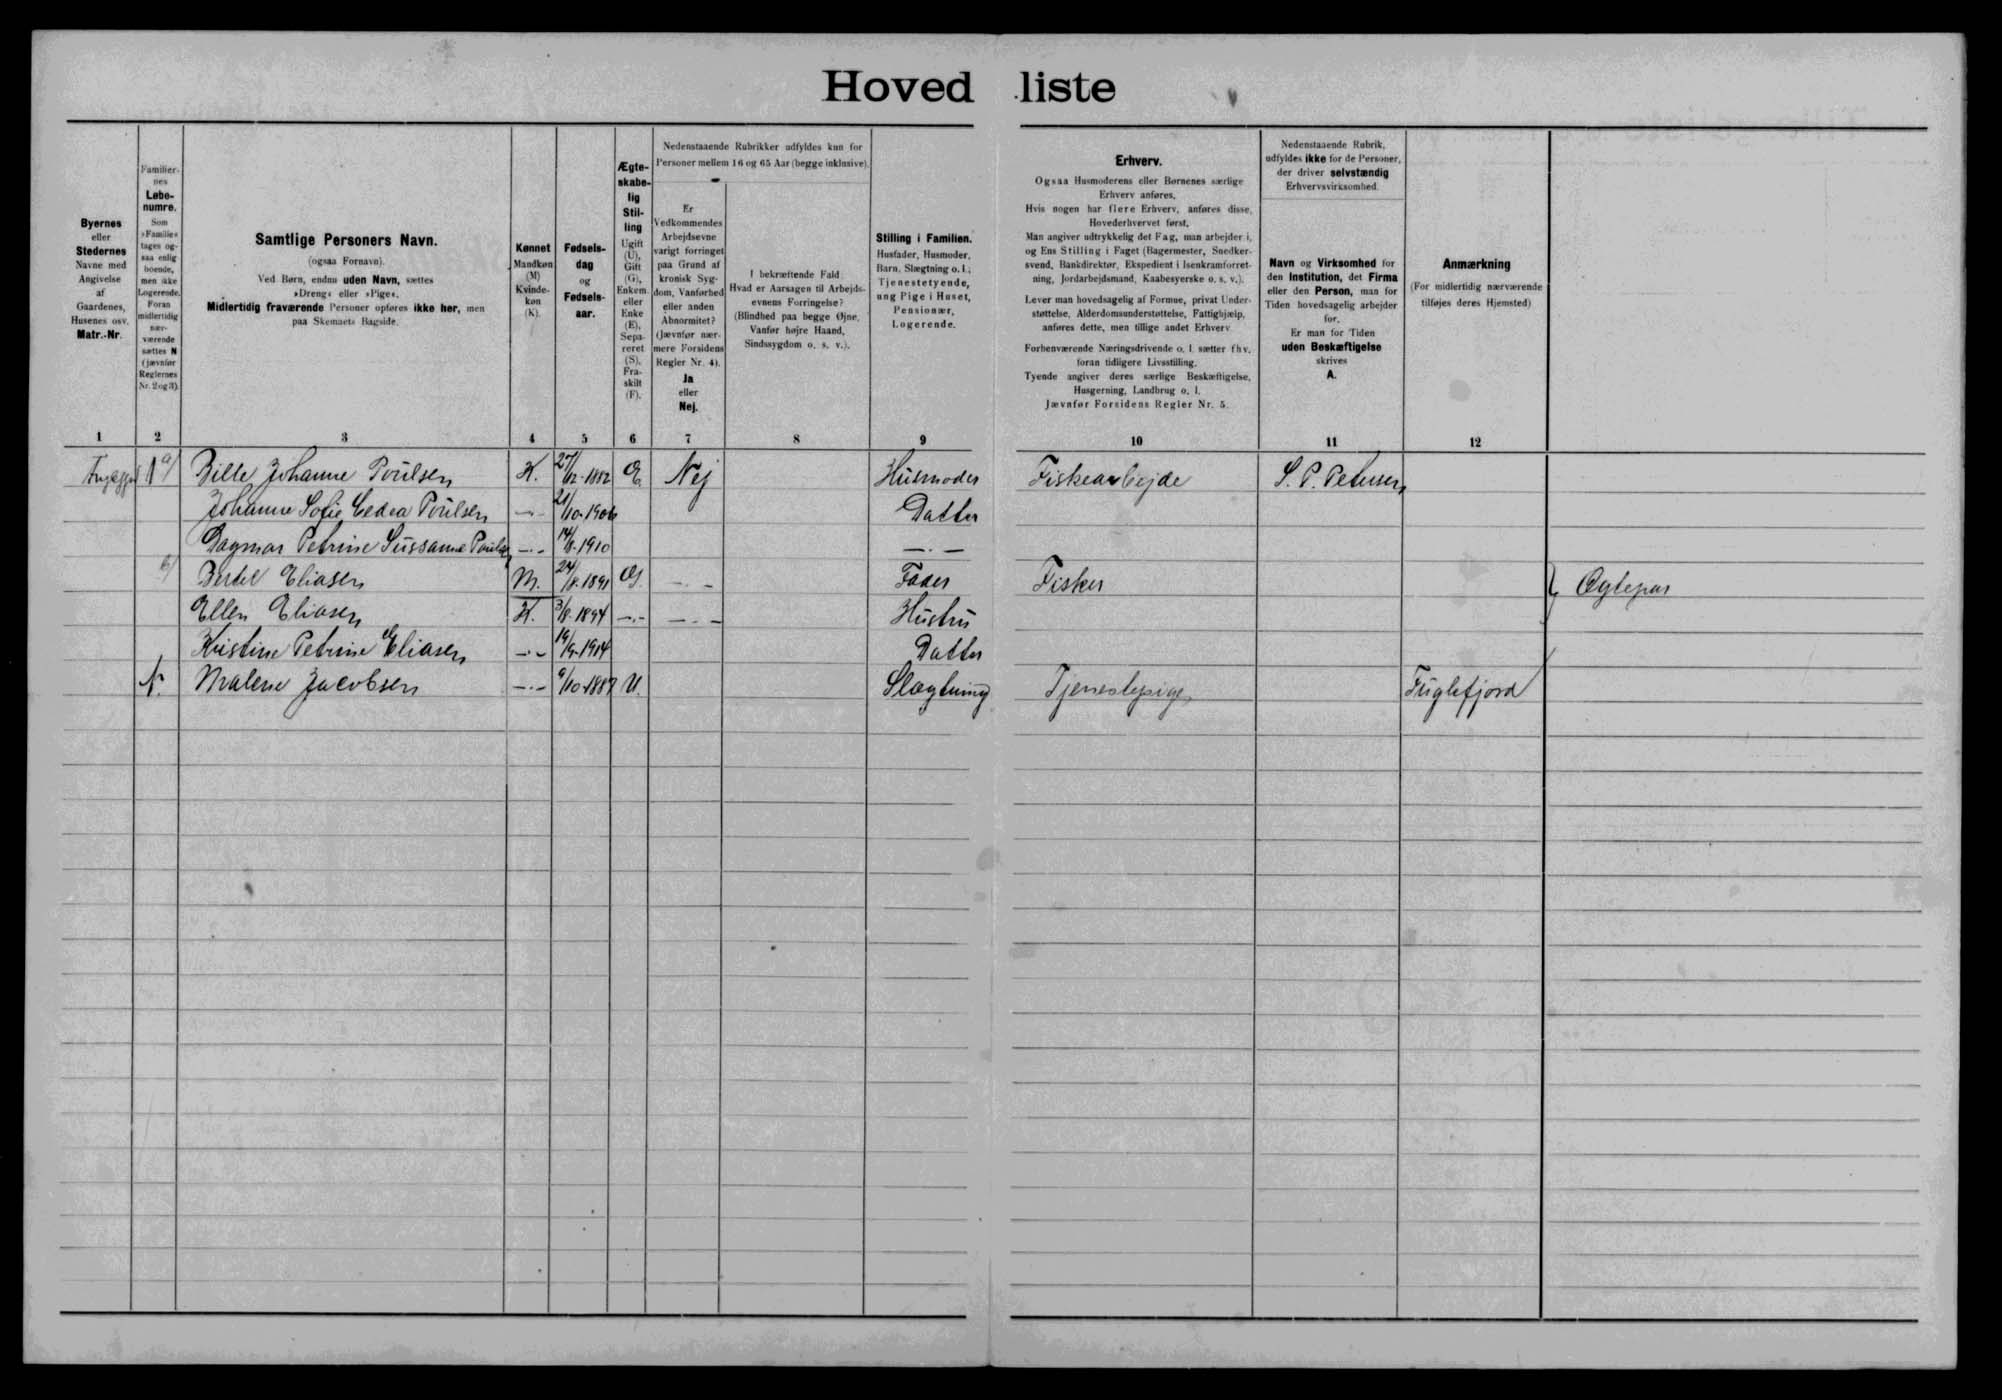 Hovedliste
Byernes
eller
Stedernes
Navne med
Angivelse
af
Gaardenes,
Husenes osv.
Matr.-Nr.
Familier-
nes
Løbe-
numre.
Som
»Familie«
tages og-
saa enlig
boende,
men ikke
Logerende.
Foran
midlertidig
nær-
værende
sættes N
(jævnfør
Reglernes
Nr. 2 og 3).
Samtlige Personers Navn.
(ogsaa Fornavn).
Ved Børn, endnu uden Navn, sættes
»Dreng« eller »Pige«.
Midlertidig fraværende Personer opføres ikke her, men
paa Skemaets Bagside.
Kønnet
Mandkøn
(M)
Kvinde-
køn
(K).
Fødsels-
dag
og
Fødsels-
aar.
Ægte-
skabe-
lig
Stil-
ling
Ugift
(U),
Gift
(G),
Enkem.
eller
Enke
(E),
Sepa-
reret
(S),
Fra-
skilt
(F).
Nedenstaaende Rubrikker udfyldes kun for
Personer mellem 16 og 65 Aar (begge inklusive).
Er
Vedkommendes
Arbejdsevne
varigt forringet
paa Grund af
kronisk Syg-
dom, Vanførhed
eller anden
Abnormitet?
(Jævnfør nær-
mere Forsidens
Regler Nr. 4).
Ja
eller
Nej.
I bekræftende Fald:
Hvad er Aarsagen til Arbejds-
evnens Forringelse?
(Blindhed paa begge Øjne,
Vanfør højre Haand,
Sindssygdom o. s. v.).
Stilling i Familien.
Husfader, Husmoder,
Barn, Slægtning o. l.;
Tjenestetyende,
ung Pige i Huset,
Pensionær,
Logerende.
Erhverv.
Ogsaa Husmoderens eller Børnenes særlige
Erhverv anføres.
Hvis nogen har flere Erhverv, anføres disse,
Hovederhvervet først.
Man angiver udtrykkelig det Fag, man arbejder i,
og Ens Stilling i Faget (Bagermester, Snedker-
svend, Bankdirektør, Ekspedient i Isenkramforret-
ning, Jordarbejdsmand, Kaabesyerske o. s. v.).
Lever man hovedsagelig af Formue, privat Under-
støttelse, Alderdomsunderstøttelse, Fattighjælp,
anføres dette, men tillige andet Erhverv.
Forhenværende Næringsdrivende o. l. sætter fhv.
foran tidligere Livsstilling.
Tyende angiver deres særlige Beskæftigelse,
Husgerning, Landbrug o. l.
Jævnfør Forsidens Regler Nr. 5.
Nedenstaaende Rubrik,
udfyldes ikke for de Personer,
der driver selvstændig
Erhvervsvirksomhed.
Navn og Virksomhed for
den Institution, det Firma
eller den Person, man for
Tiden hovedsagelig arbejder
for.
Er man for Tiden
uden Beskæftigelse
skrives
A.
Anmærkning
(For midlertidig nærværende
tilføjes deres Hjemsted)
1 2 3 4 5 6 7 8 9 10 11 12
1 a/ Bille Johanne Poulsen K. 27/12-1882 E. Nej Husmoder Fiskearbejde S. P. Petersen
Johanne Sofie Poulsen -·- 21/10-1906 Datter
Dagmar Petrine Sussanne Poulsen -·- 14/8-1910 -·-
b/ Bertel Eliasen M. 24/8-1891 G. -·- Fader Fisker } Ægtepar
Ellen Eliasen K. 3/8-1894 -·- -·- Hustru
Kristine Petrine Eliasen -·- 19/9-1914 Datter
N. Malene Jacobsen -·- 6/10-1887 U. Slægtning Tjenestepige Fuglefjord